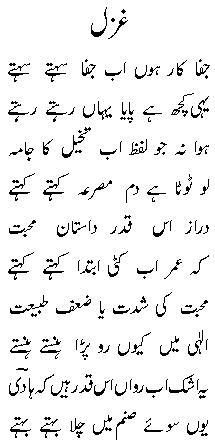 غزل
جفا کار ہوں اب جفا سہتے سہتے
یہی کچھ ہے پایا یہاں رہتے رہتے
ہوا نہ جو لفظ اب تخیل کا جامہ
لو ٹوٹا ہے دم مصرعہ کہتے کہتے
دراز اس قدر داستان محبت
کہ عمر اب کٹی ابتدا کہتے کہتے
محبت کی شدت یا ضعف طبیعت
الٰہی میں کیوں رو پڑا ہنستے ہنستے
یہ اشک اب رواں اس قدر ہیں کہ ہادیؔ
یوں سوئے صنم میں چلا بہتے بہتے